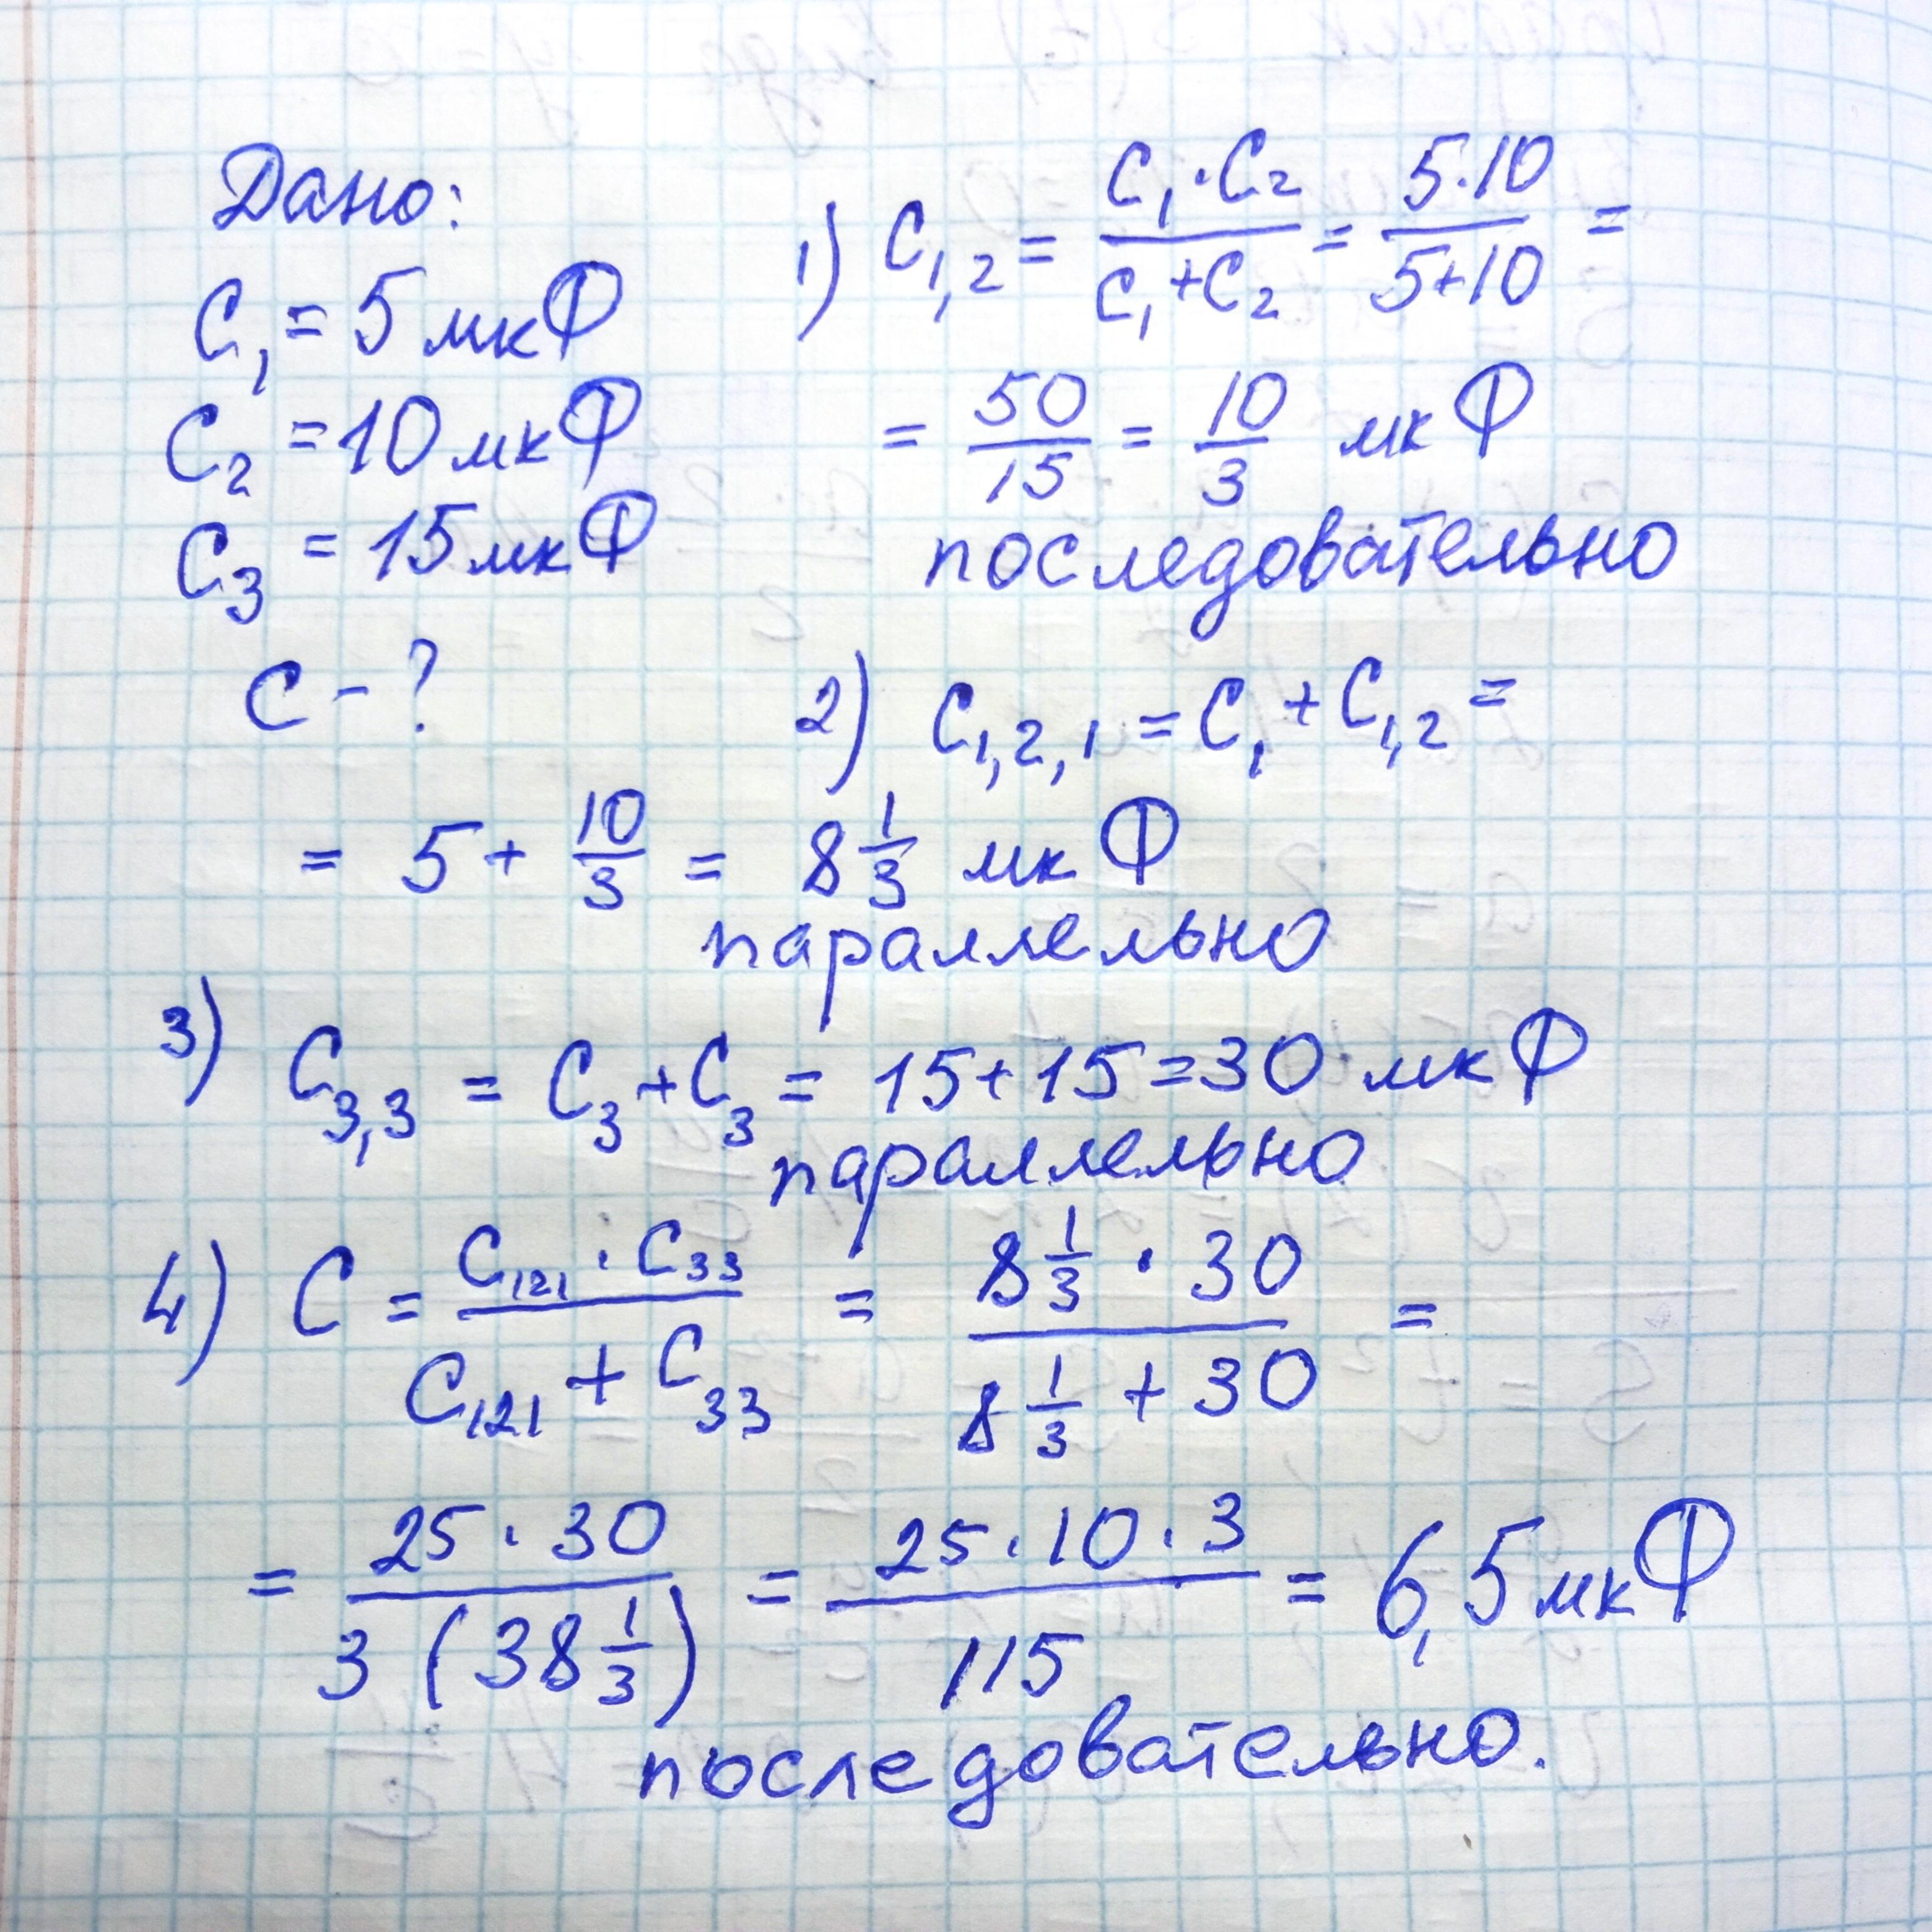 Дано:
C₁ = 5 мкФ
C₂ = 10 мкФ
C₃ = 15 мкФ
C - ?
1) C₁,₂ = (C₁ · C₂)/(C₁ + C₂) = (5·10)/(5+10) =
= 50/15 = 10/3 мкФ
последовательно
2) C₁,₂,₁ = C₁ + C₁,₂ =
= 5 + 10/3 = 8 1/3 мкФ
параллельно
3) C₃,₃ = C₃ + C₃ = 15+15=30 мкФ
параллельно
4) C = (C₁₂₁ · C₃₃)/(C₁₂₁ + C₃₃) = (8 1/3 · 30)/(8 1/3 + 30) =
= (25 · 30)/(3 (38 1/3)) = (25 · 10 · 3)/115 = 6,5 мкФ
последовательно.